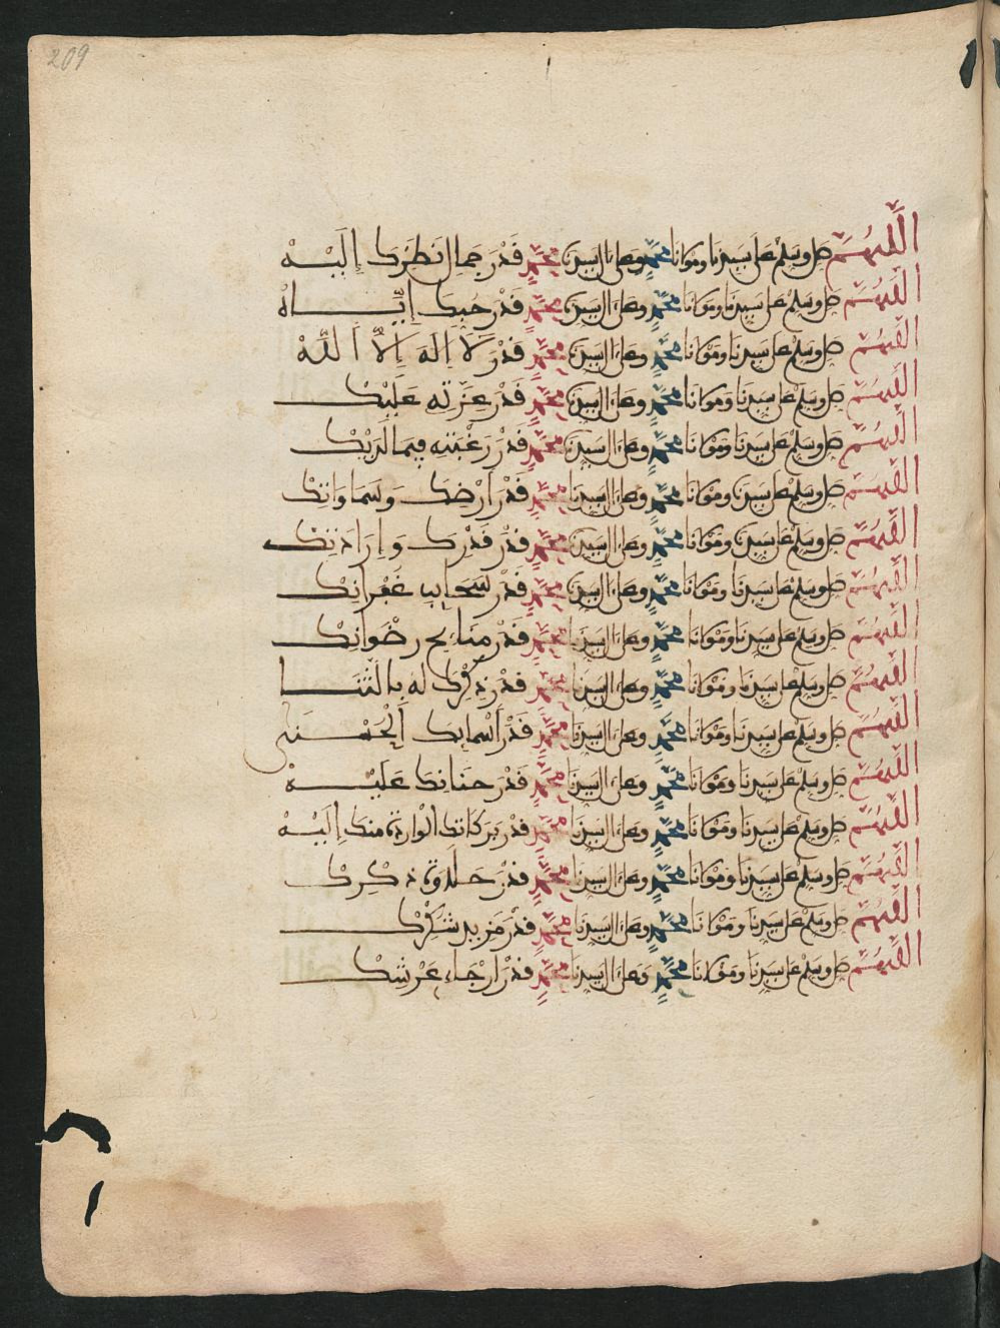 209
اللهم صل وسلم على سيدنا ومولانا محمد وعلى ال سيدنا محمد قدر جمال نظرك إليه
اللهم صل وسلم على سيدنا ومولانا محمد وعلى ال سيدنا محمد قدر حبك إياه
اللهم صل وسلم على سيدنا ومولانا محمد وعلى ال سيدنا محمد قدر لا اله إلا الله
اللهم صل وسلم على سيدنا ومولانا محمد وعلى ال سيدنا محمد قدر عزته عليك
اللهم صل وسلم على سيدنا ومولانا محمد وعلى ال سيدنا محمد قدر رغبته فيما لديك
اللهم صل وسلم على سيدنا ومولانا محمد وعلى ال سيدنا محمد قدر ارضك وسماواتك
اللهم صل وسلم على سيدنا ومولانا محمد وعلى ال سيدنا محمد قدر قدرك وإرادتك
اللهم صل وسلم على سيدنا ومولانا محمد وعلى ال سيدنا محمد قدر سحايب غفرانك
اللهم صل وسلم على سيدنا ومولانا محمد وعلى ال سيدنا محمد قدر منايح رضوانك
اللهم صل وسلم على سيدنا ومولانا محمد وعلى ال سيدنا محمد قدر ذكرك له بالثنا
اللهم صل وسلم على سيدنا ومولانا محمد وعلى ال سيدنا محمد قدر أسمايك الحسنى
اللهم صل وسلم على سيدنا ومولانا محمد وعلى ال سيدنا محمد قدر حنانك عليه
اللهم صل وسلم على سيدنا ومولانا محمد وعلى ال سيدنا محمد قدر بركاتك الواردة منك إليه
اللهم صل وسلم على سيدنا ومولانا محمد وعلى ال سيدنا محمد قدر حلاوة ذكرك
اللهم صل وسلم على سيدنا ومولانا محمد وعلى ال سيدنا محمد قدر مزيد شكرك
اللهم صل وسلم على سيدنا ومولانا محمد وعلى ال سيدنا محمد قدر ارجاء عرشك